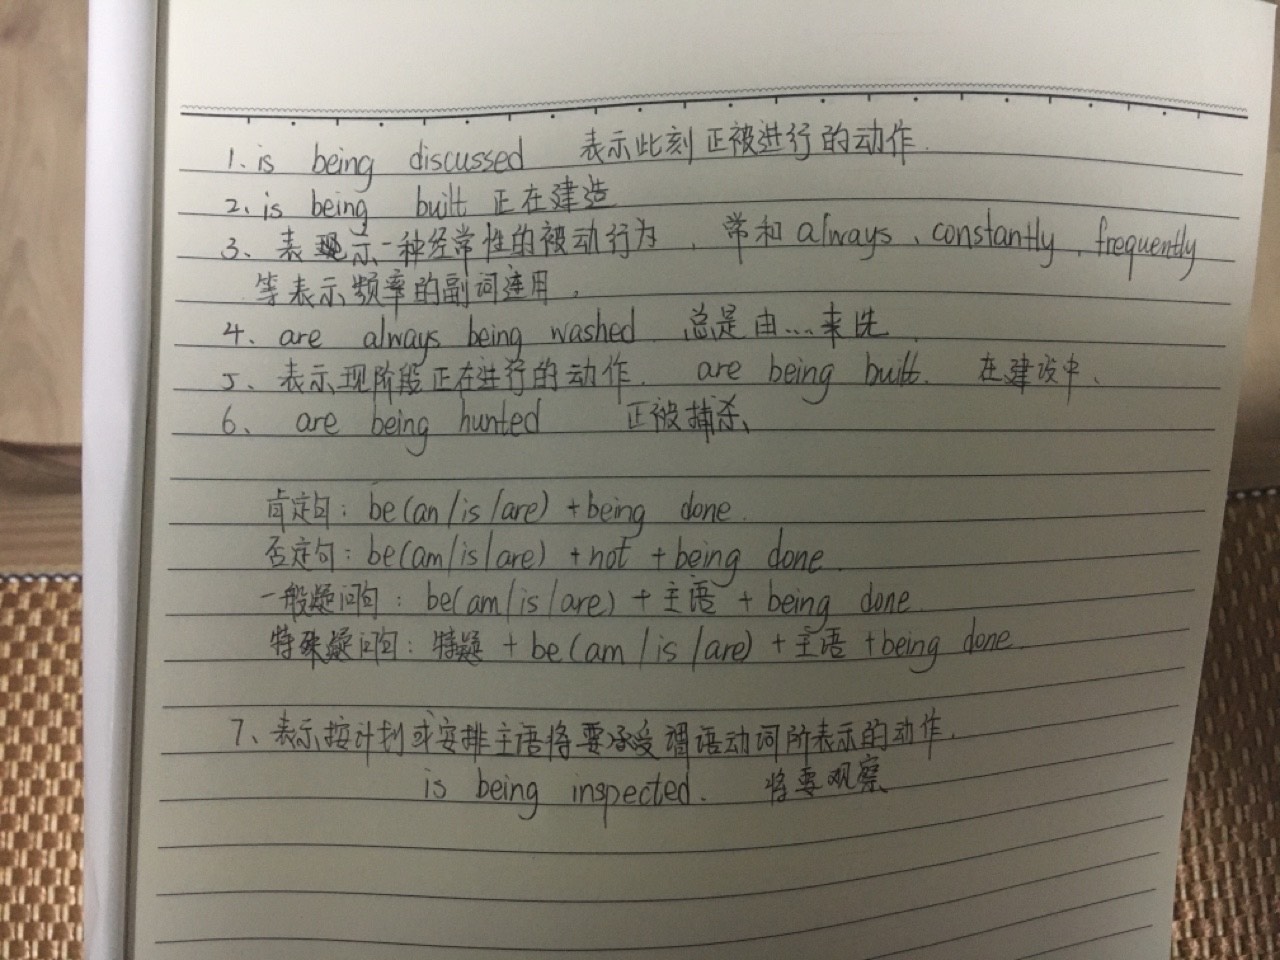 1. is being discussed 表示此刻正被进行的动作.
2、is being built 正在建造
3、表现示一种经常性的被动行为，常和always、constantly、frequently
等表示频率的副词连用。
4. are always being washed. 总是由....来洗.
5、表示现阶段正在进行的动作. are being built. 在建设中、
6、 are being hunted 正被捕杀、
肯定句：be(an/is/are) +being done.
否定句：be(am/is/are) +not +being done.
一般疑问句：be(am/is/are) + 主语 + being done.
特殊疑问句：特疑 + be(am/is/are) + 主语 +being done.
7、表示按计划或安排主语将要承受谓语动词所表示的动作.
is being inspected. 将要观察